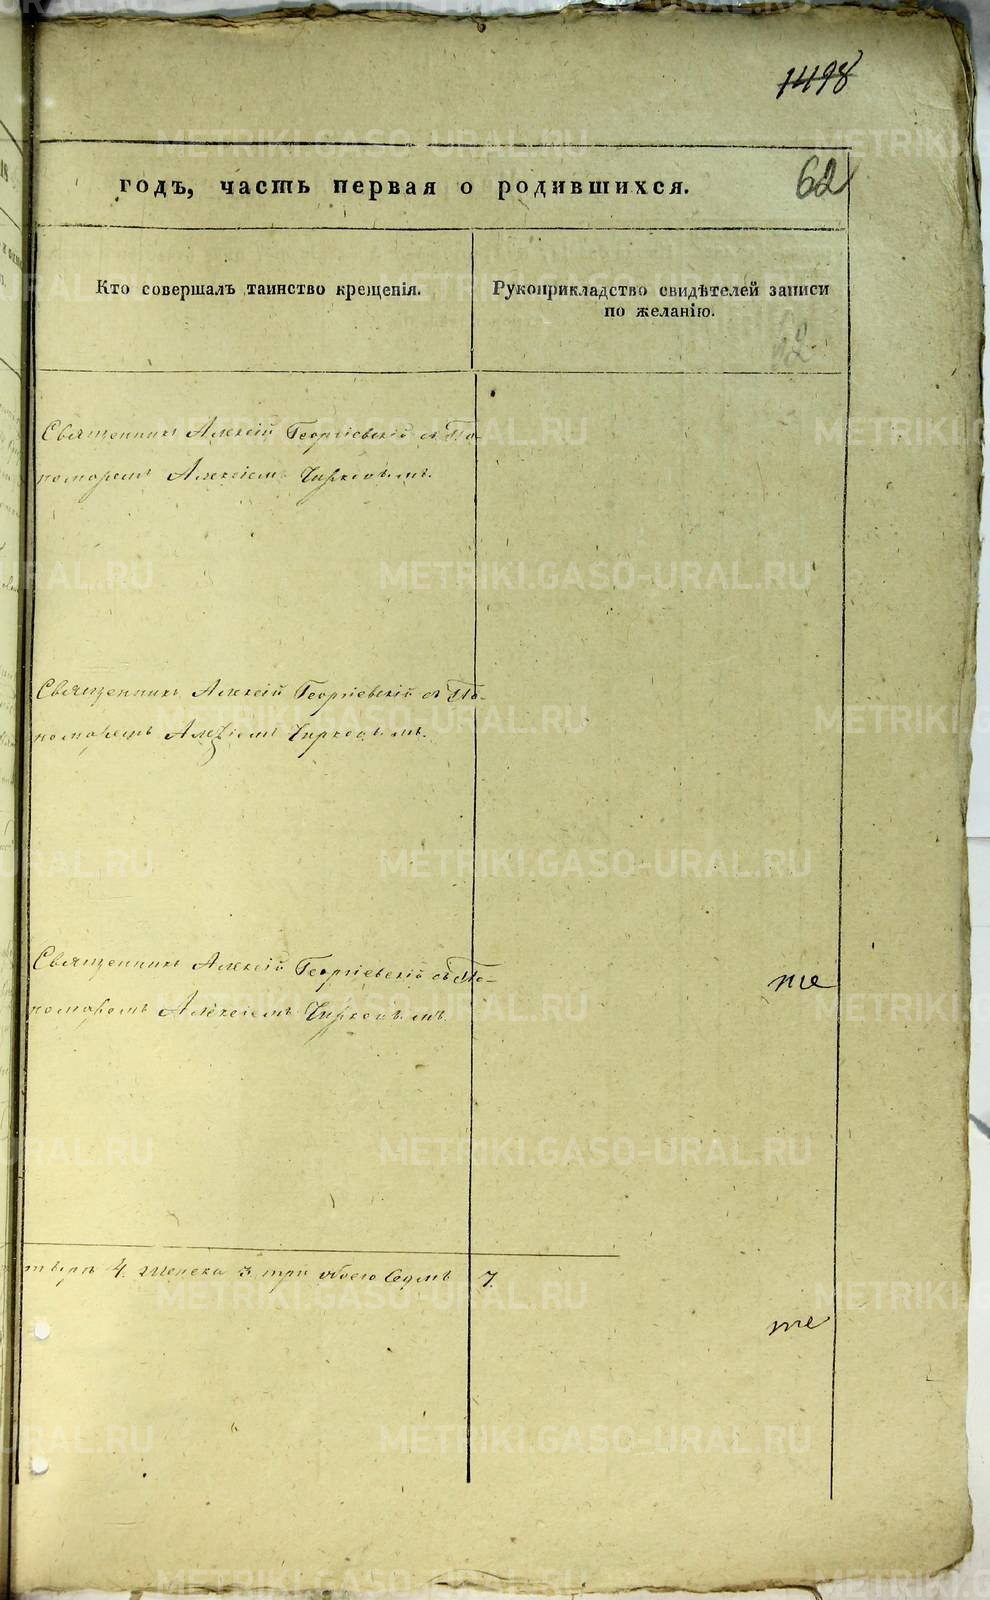 1498
годъ, часть первая о родившихся.
62
Кто совершалъ таинство крещенія.
Рукоприкладство свидѣтелей записи
по желанію.
62
Священникъ Алексій Георгіевскій съ По-
номаремъ Алексіемъ Чирковымъ.
Священникъ Алексій Георгіевскій съ По-
номаремъ Алексіемъ Чирковымъ.
Священникъ Алексій Георгіевскій съ По-
номаремъ Алексіемъ Чирковымъ.
4. женска 3 три обоего Седмь 7.
METRIKI.GASO-URAL.RU